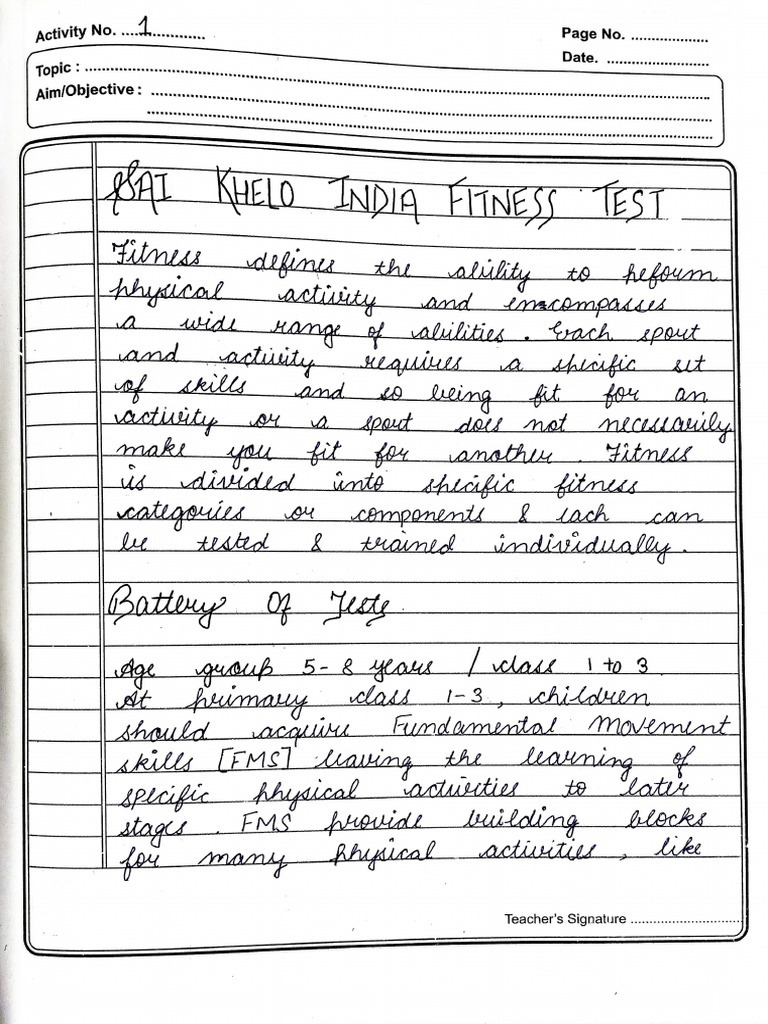 Activity No. ....1............
Page No. ....................
Date. ..........................
Topic : ....................
Aim/Objective : ....................
SAI KHELO INDIA FITNESS TEST
Fitness defines the ability to peform
physical activity and encompasses
a wide range of abilities. Each sport
and activity requires a specific set
of skills and so being fit for an
activity or a sport does not necessarily
make you fit for another. Fitness
is divided into specific fitness
categories or components & each can
be tested & trained individually.
Battery Of Tests
Age group 5-8 years / class 1 to 3
At primary class 1-3, children
should acquire Fundamental Movement
skills [FMS] leaving the learning of
specific physical activities to later
stages. FMS provide building blocks
for many physical activities, like
Teacher's Signature ..............................